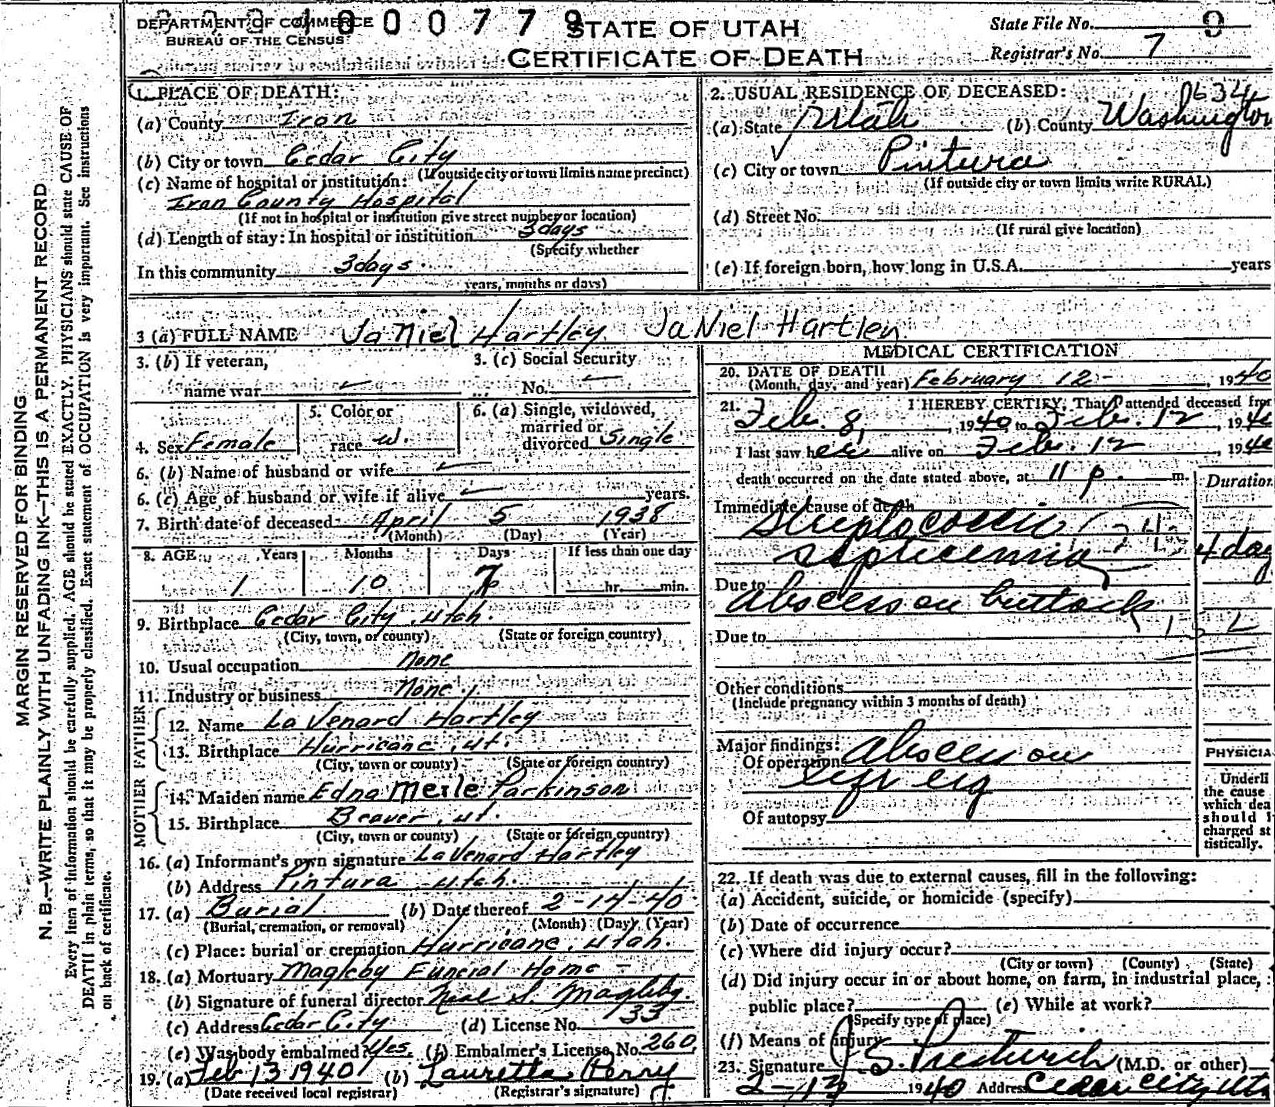 DEPARTMENT OF COMMERCE
BUREAU OF THE CENSUS
1 0 0 0 7 7 9
STATE OF UTAH
CERTIFICATE OF DEATH
State File No. 8
Registrar's No. 7
MARGIN RESERVED FOR BINDING
N. B.—WRITE PLAINLY WITH UNFADING INK—THIS IS A PERMANENT RECORD
Every item of information should be carefully supplied. AGE should be stated EXACTLY. PHYSICIANS should state CAUSE OF
DEATH in plain terms, so that it may be properly classified. Exact statement of OCCUPATION is very important. See instructions
on back of certificate.
1. PLACE OF DEATH:
(a) County Iron
(b) City or town Cedar City
(If outside city or town limits name precinct)
(c) Name of hospital or institution:
Iron County Hospital
(If not in hospital or institution give street number or location)
(d) Length of stay: In hospital or institution 3 days
(Specify whether
In this community 3 days
years, months or days)
2. USUAL RESIDENCE OF DECEASED: 0634
(a) State Utah (b) County Washington
(c) City or town Pintura
(If outside city or town limits write RURAL)
(d) Street No.
(If rural give location)
(e) If foreign born, how long in U.S.A. years
3 (a) FULL NAME JaNiel Hartley. JaNiel Hartley
3. (b) If veteran,
name war
3. (c) Social Security
No.
4. Sex Female
5. Color or
race w.
6. (a) Single, widowed,
married or
divorced Single
6. (b) Name of husband or wife
6. (c) Age of husband or wife if alive years.
7. Birth date of deceased April 5 1938
(Month) (Day) (Year)
8. AGE Years Months Days If less than one day
1 10 7 hr. min.
9. Birthplace Cedar City, Utah.
(City, town, or county) (State or foreign country)
10. Usual occupation None
11. Industry or business None
FATHER
12. Name LaVenard Hartley
13. Birthplace Hurricane, Ut.
(City, town or county) (State or foreign country)
MOTHER
14. Maiden name Edna Merle Parkinson
15. Birthplace Beaver, Ut.
(City, town or county) (State or foreign country)
16. (a) Informant's own signature LaVenard Hartley
(b) Address Pintura Utah.
17. (a) Burial (b) Date thereof 2-14-40
(Burial, cremation, or removal) (Month) (Day) (Year)
(c) Place: burial or cremation Hurricane, Utah.
18. (a) Mortuary Magleby Funeral Home
(b) Signature of funeral director Neal S. Magleby
(c) Address Cedar City. (d) License No. 33
(e) Was body embalmed? Yes. (f) Embalmer's License No. 260
19. (a) Feb 13 1940 (b) Lauretta Perry
(Date received local registrar) (Registrar's signature)
MEDICAL CERTIFICATION
20. DATE OF DEATH
(Month, day, and year) February 12- , 1940
21. I HEREBY CERTIFY, That I attended deceased from
Feb. 8, , 1940 to Feb. 12 , 1940
I last saw her alive on Feb. 12 , 1940
death occurred on the date stated above, at 11 p. m.
Duration
Immediate cause of death
Streptococcic
septicemia 4 day
Due to
Abscess on buttock
Due to
Other conditions
(Include pregnancy within 3 months of death)
Major findings:
Of operation Abscess on
left leg
Of autopsy
PHYSICIA
Underli
the cause
which dea
should b
charged st
tistically.
22. If death was due to external causes, fill in the following:
(a) Accident, suicide, or homicide (specify)
(b) Date of occurrence
(c) Where did injury occur?
(City or town) (County) (State)
(d) Did injury occur in or about home, on farm, in industrial place,
public place? (e) While at work?
(Specify type of place)
(f) Means of injury
23. Signature J. S. Prestwich (M.D. or other)
2-13 1940 Address Cedar City Uta